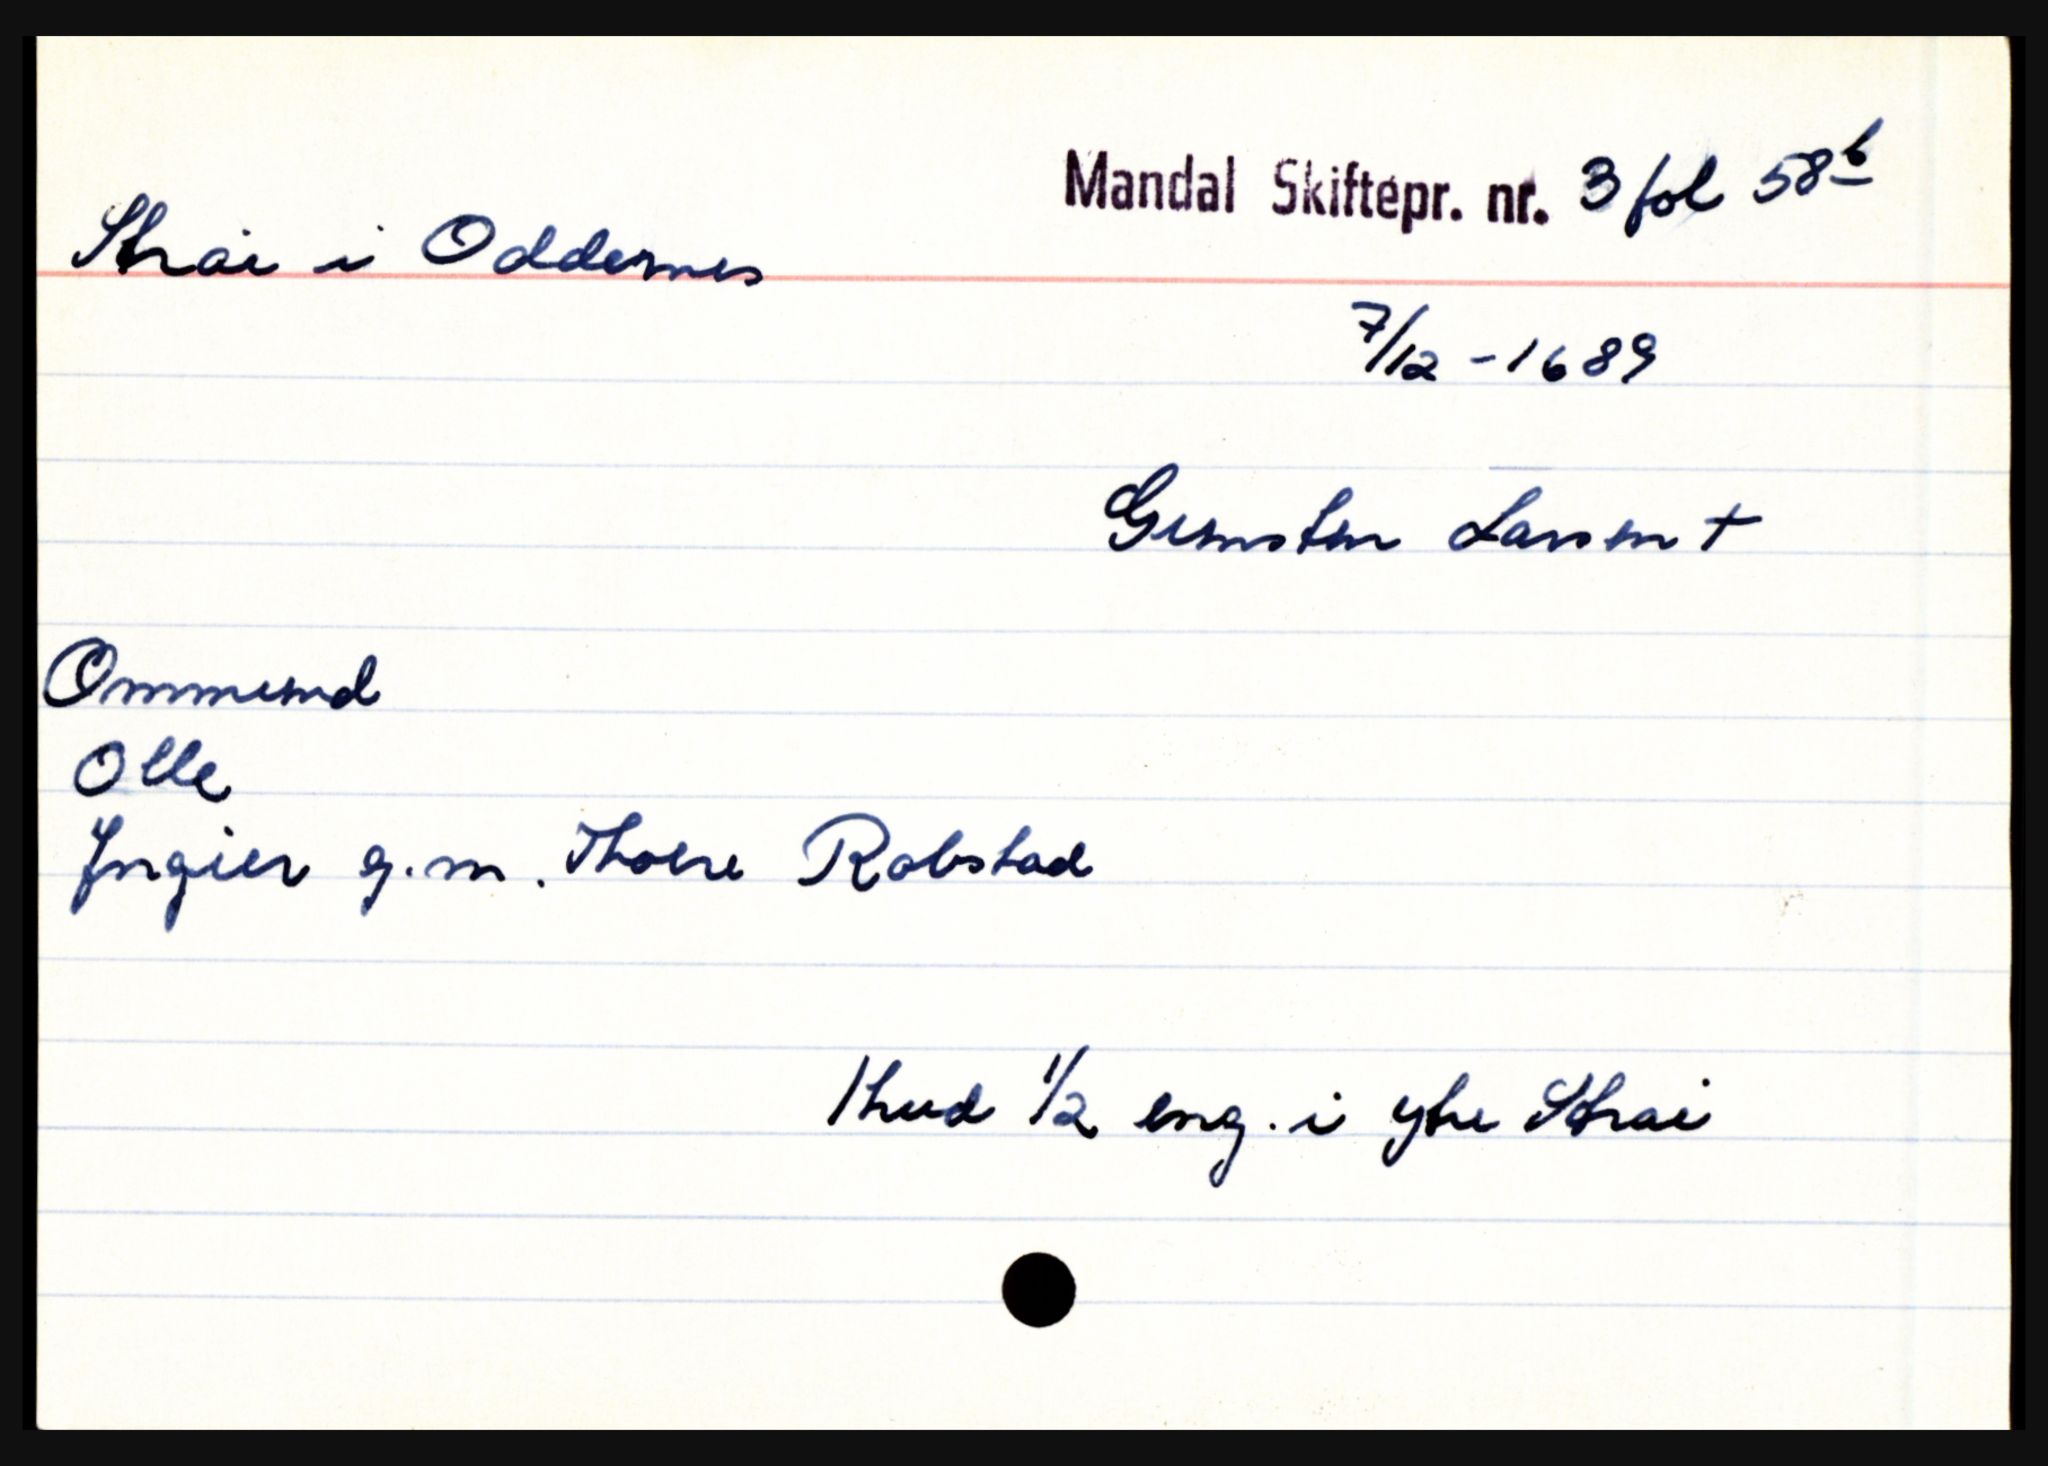 Mandal Skiftepr. nr. 3 fol 58b
Strai i Oddernes
7/12 - 1689
Gunsten Larsen +
Ommund
Olle
Ingier g.m. Thore Robstad
1 hud 1/2 eng. i ytre Strai